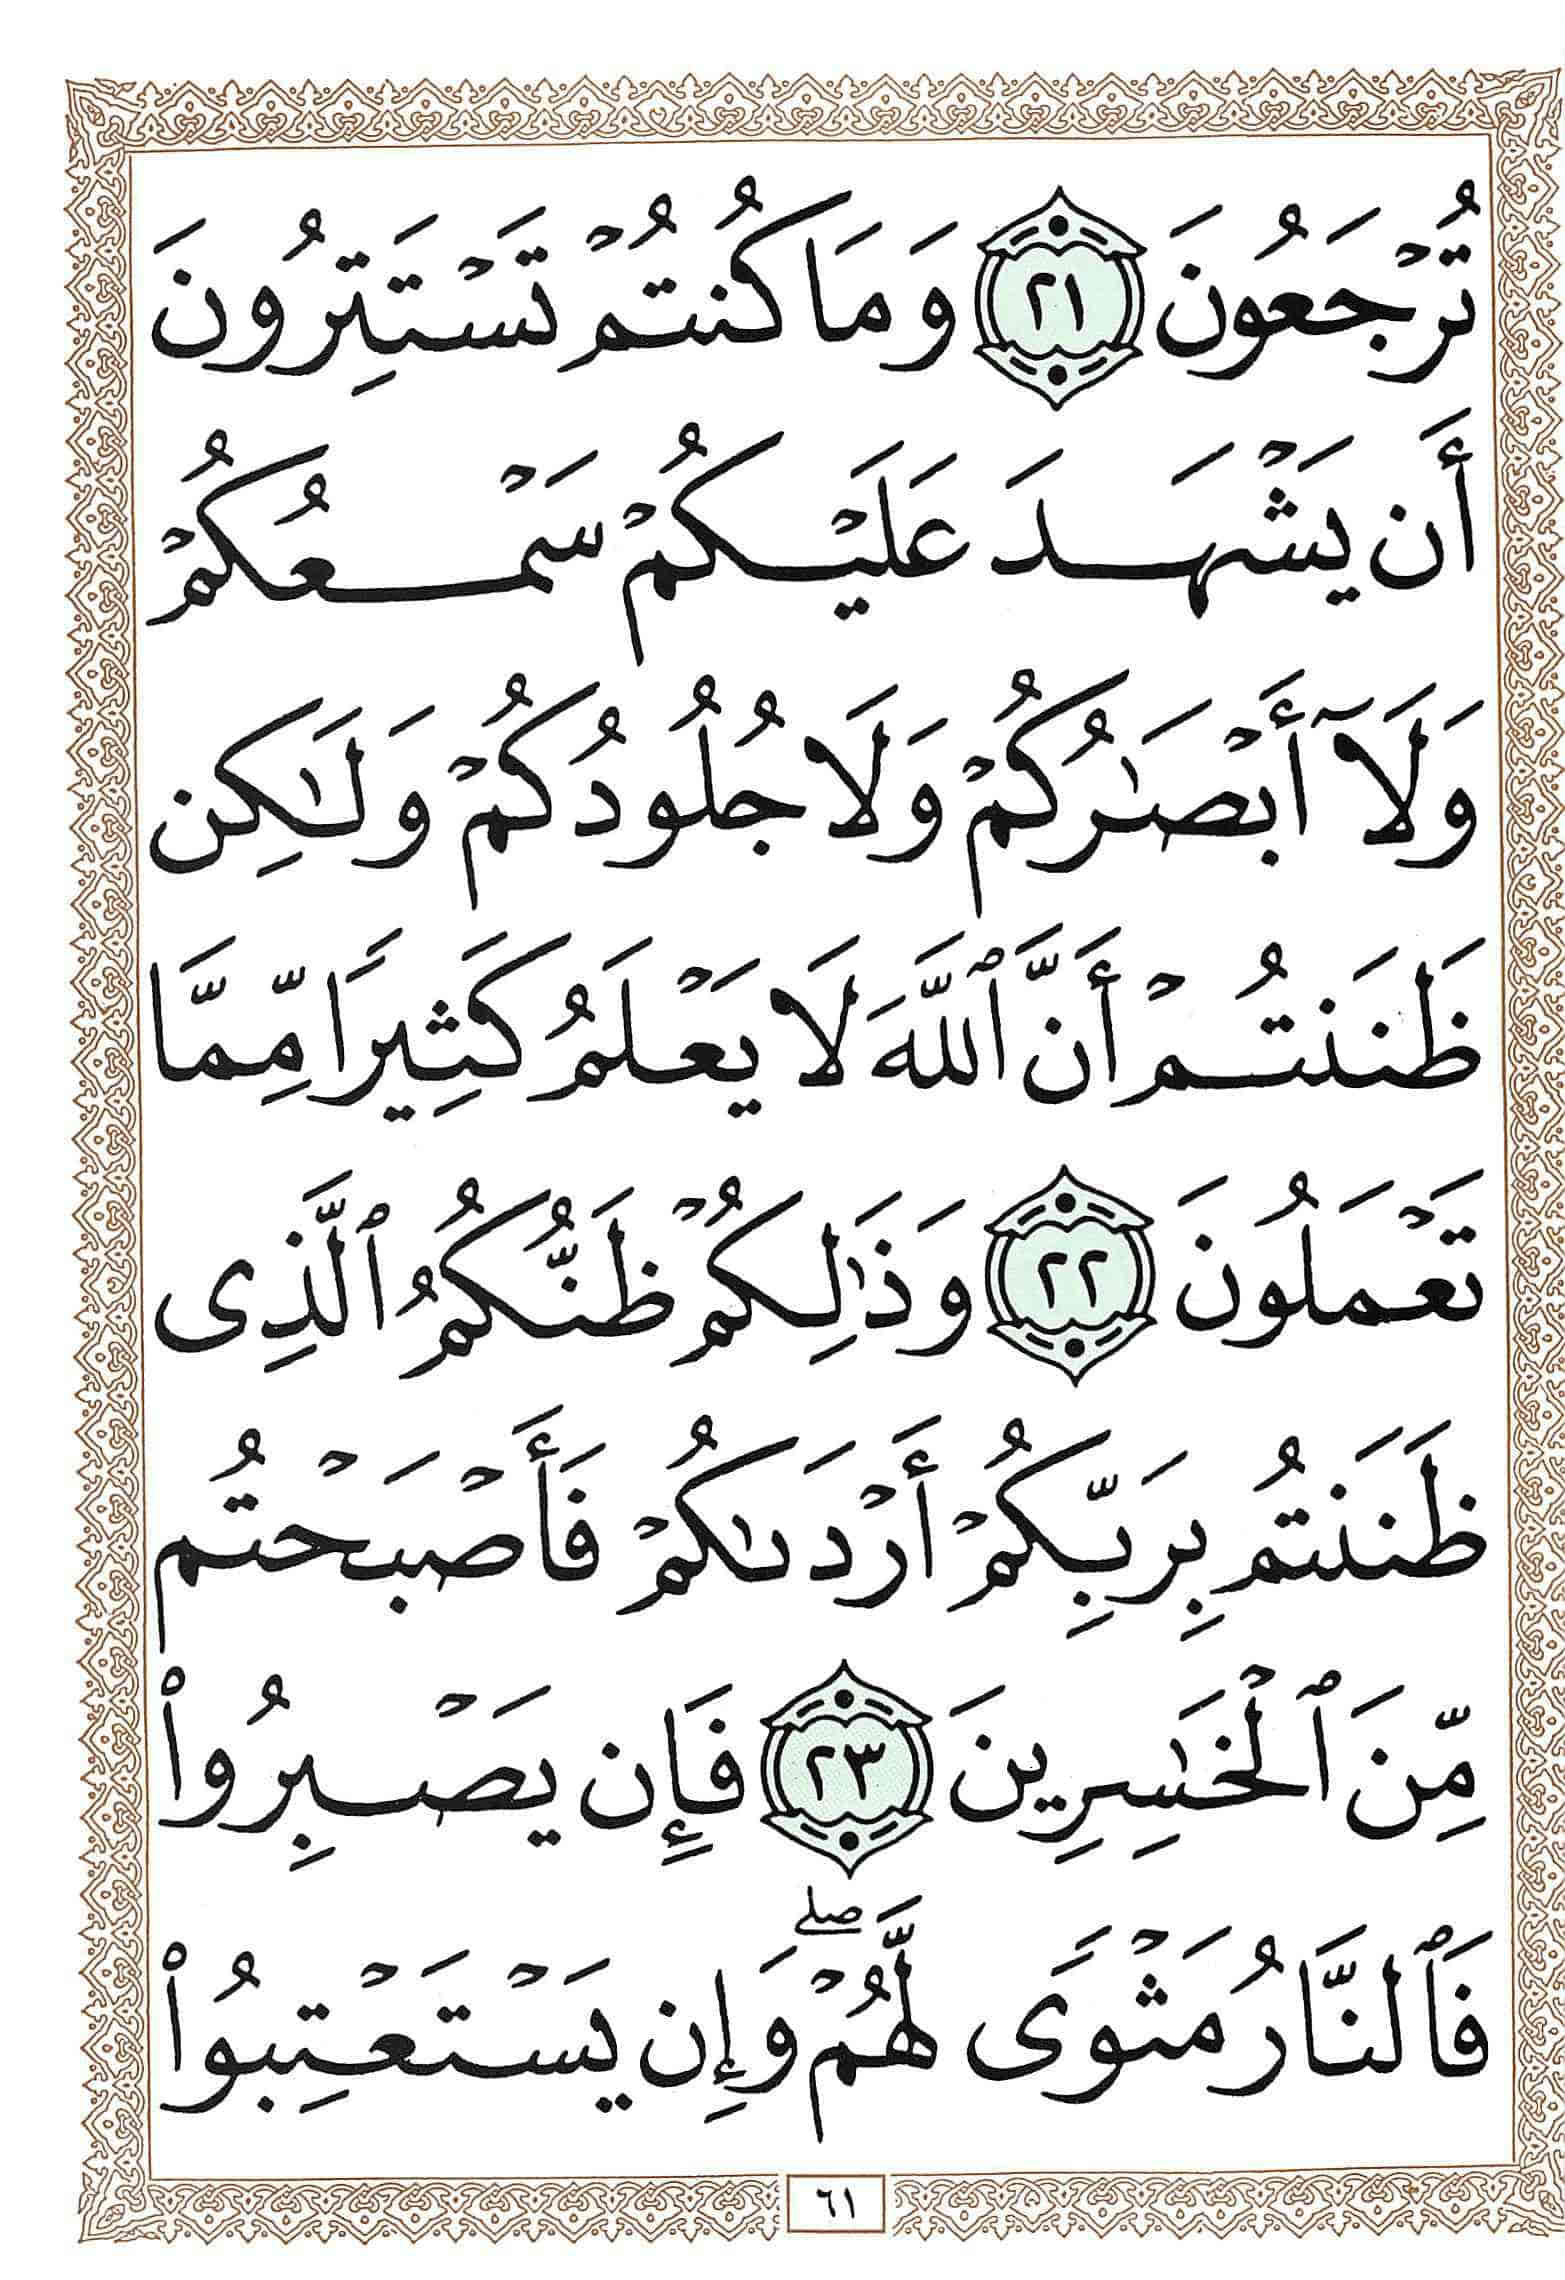 تُرْجَعُونَ ٢١ وَمَا كُنتُمْ تَسْتَتِرُونَ
أَن يَشْهَدَ عَلَيْكُمْ سَمْعُكُمْ
وَلَآ أَبْصَٰرُكُمْ وَلَا جُلُودُكُمْ وَلَٰكِن
ظَنَنتُمْ أَنَّ ٱللَّهَ لَا يَعْلَمُ كَثِيرًا مِّمَّا
تَعْمَلُونَ ٢٢ وَذَٰلِكُمْ ظَنُّكُمُ ٱلَّذِى
ظَنَنتُم بِرَبِّكُمْ أَرْدَىٰكُمْ فَأَصْبَحْتُم
مِّنَ ٱلْخَٰسِرِينَ ٢٣ فَإِن يَصْبِرُوا۟
فَٱلنَّارُ مَثْوًى لَّهُمْ ۖ وَإِن يَسْتَعْتِبُوا۟
٦١